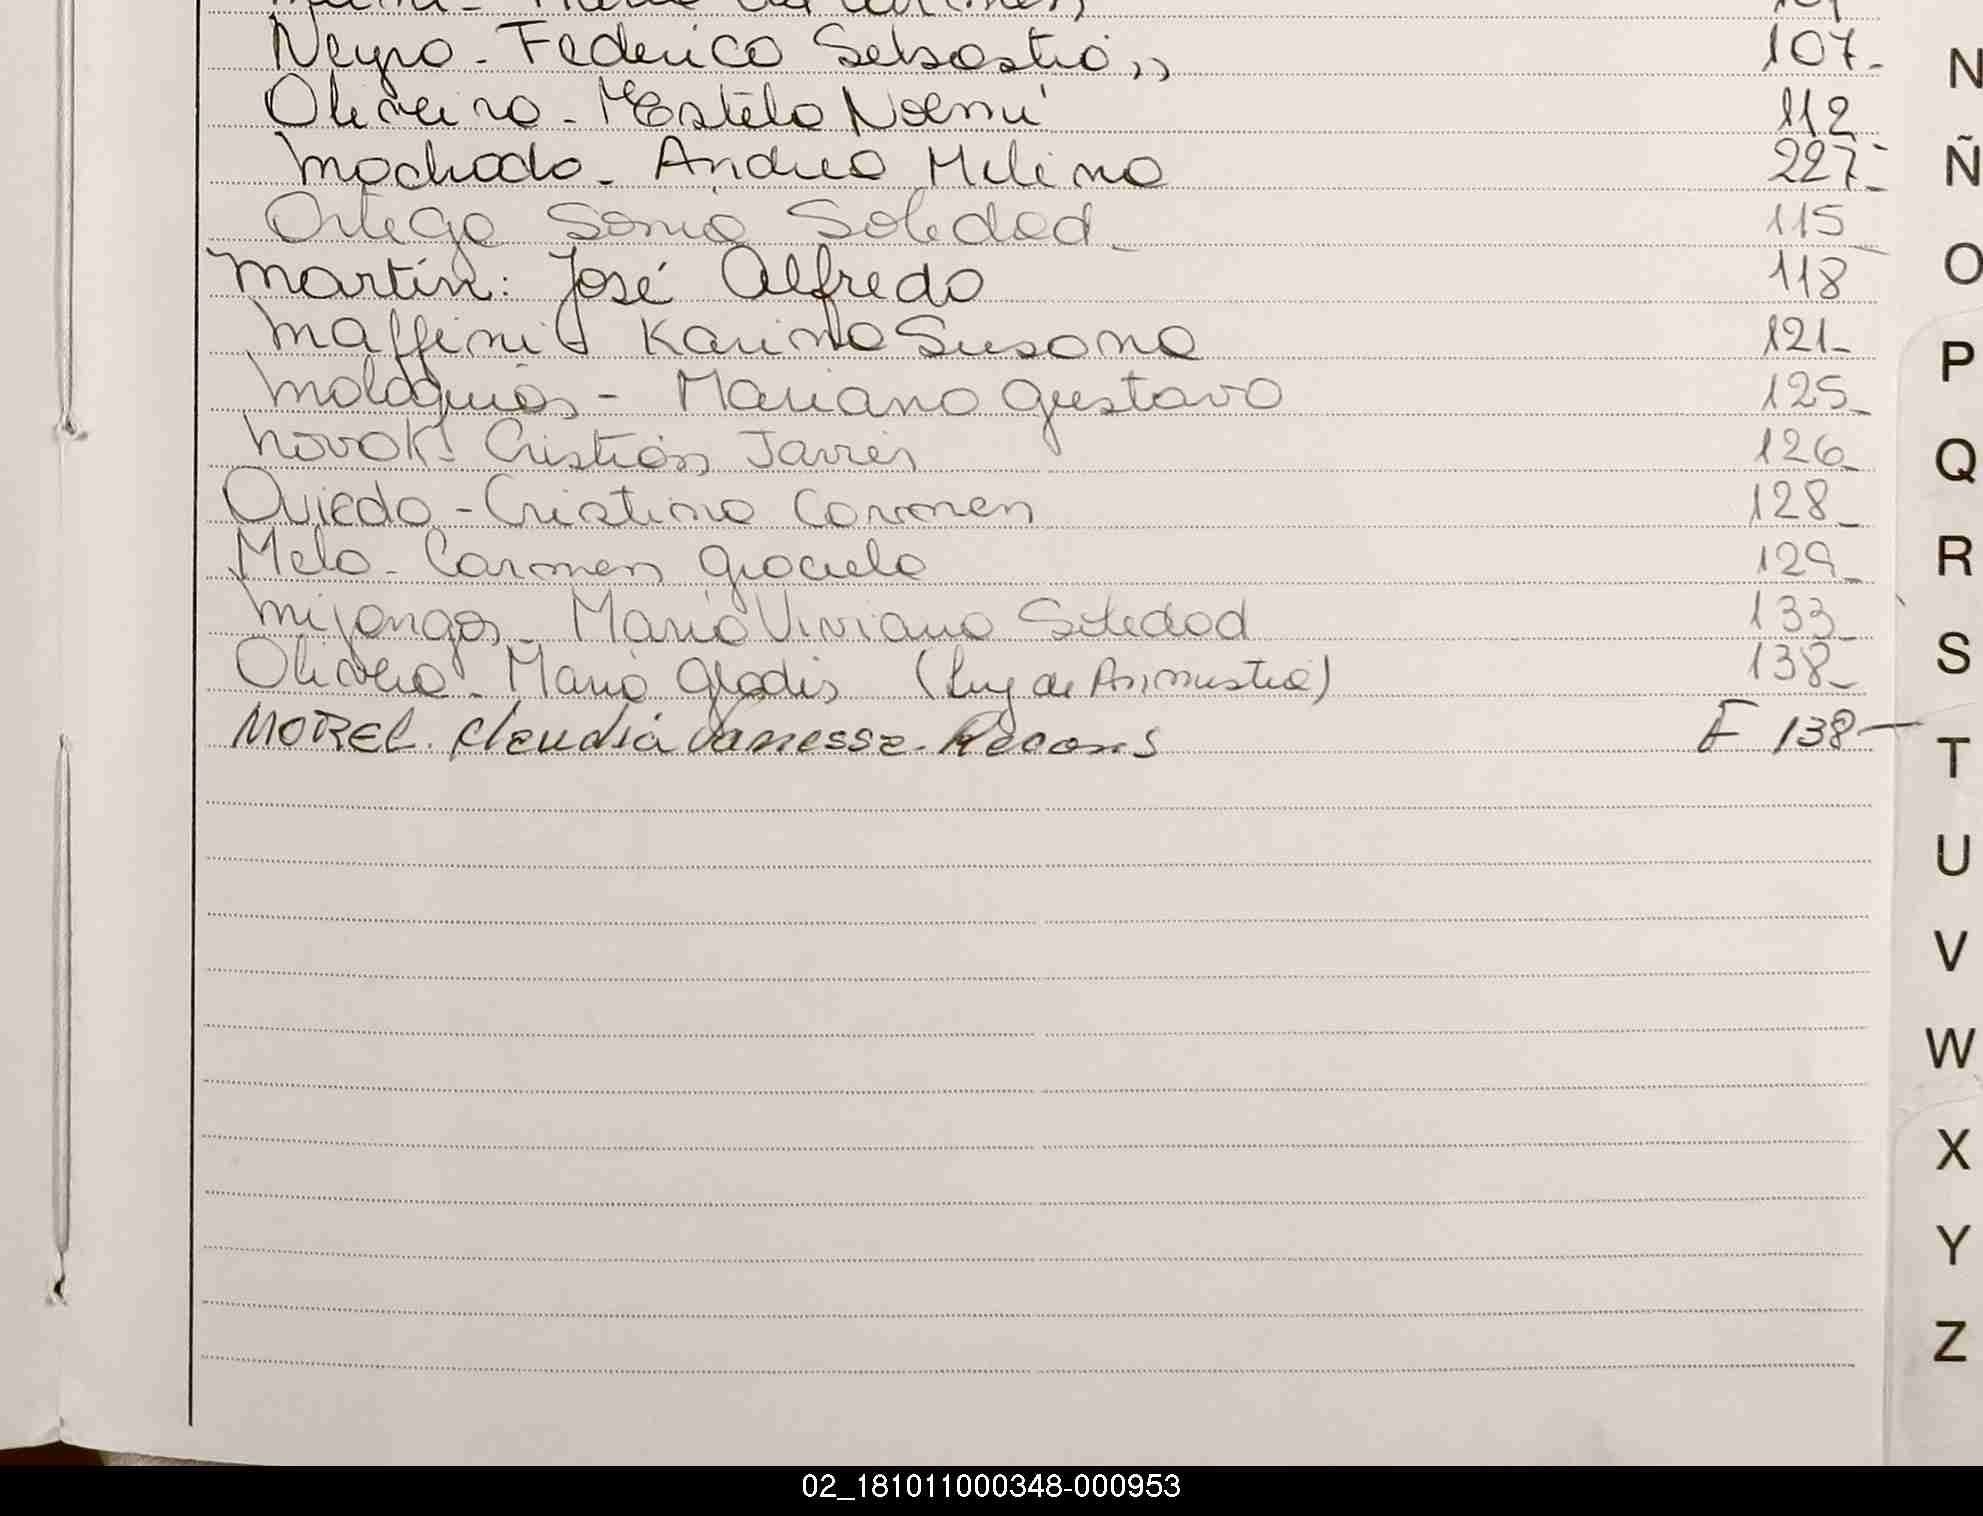 Neyro - Federico Sebastián 107-
Oliveira - Mª Estela Noemí 112
Machado - Andrea Melina 227-
Ortega Sonia Soledad - 115
Martín: José Alfredo 118
Maffini - Karina Susana 121-
Malaquias - Mariano Gustavo 125-
Novok - Cristián Javier 126-
Oviedo - Cristina Carmen 128-
Melo - Carmen Graciela 129-
Mijangos - María Viviana Soledad 133-
Olivera - María Gladis 138-
MOREL. Claudia Vanessa - Recons F 138-
N
Ñ
O
P
Q
R
S
T
U
V
W
X
Y
Z
02_181011000348-000953